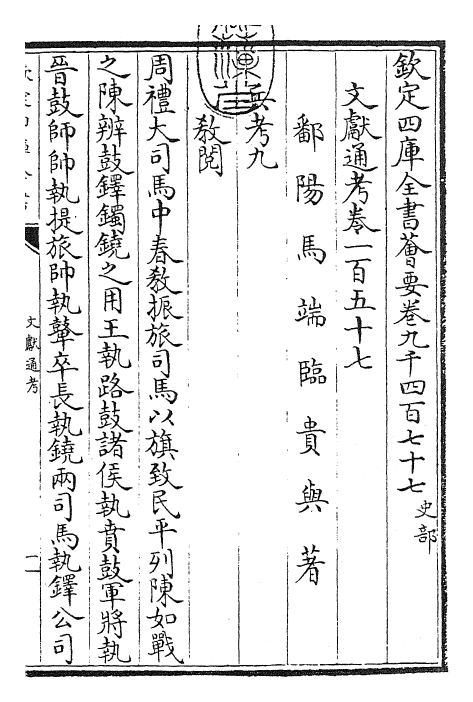 欽定四庫全書薈要卷九千四百七十七 史部
文獻通考卷一百五十七
鄱陽馬端臨貴與著
兵考九
教閱
周禮大司馬中春教振旅司馬以旗致民平列陳如戰
之陳辨鼓鐸鐲鐃之用王執路鼓諸侯執賁鼓軍將執
晉鼓師帥執提旅帥執鼙卒長執鐃兩司馬執鐸公司
文獻通考
一